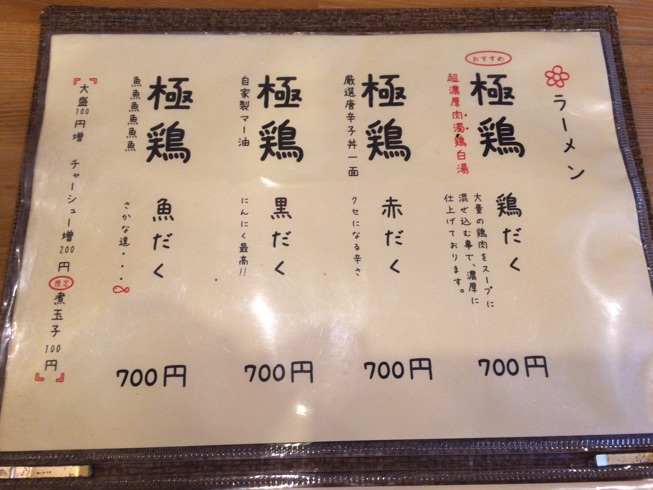 ラーメン
おすすめ
極鶏
超濃厚肉濁鶏白湯
鶏だく
大量の鶏肉をスープに
混ぜ込む事で、濃厚に
仕上げております。
700円
極鶏
厳選唐辛子丼一面
赤だく
クセになる辛さ
700円
極鶏
自家製マー油
黒だく
にんにく最高!!
700円
極鶏
魚魚魚魚魚魚
魚だく
さかな達・・・
700円
『大盛100円増 チャーシュー増200円 限定 煮玉子100円』